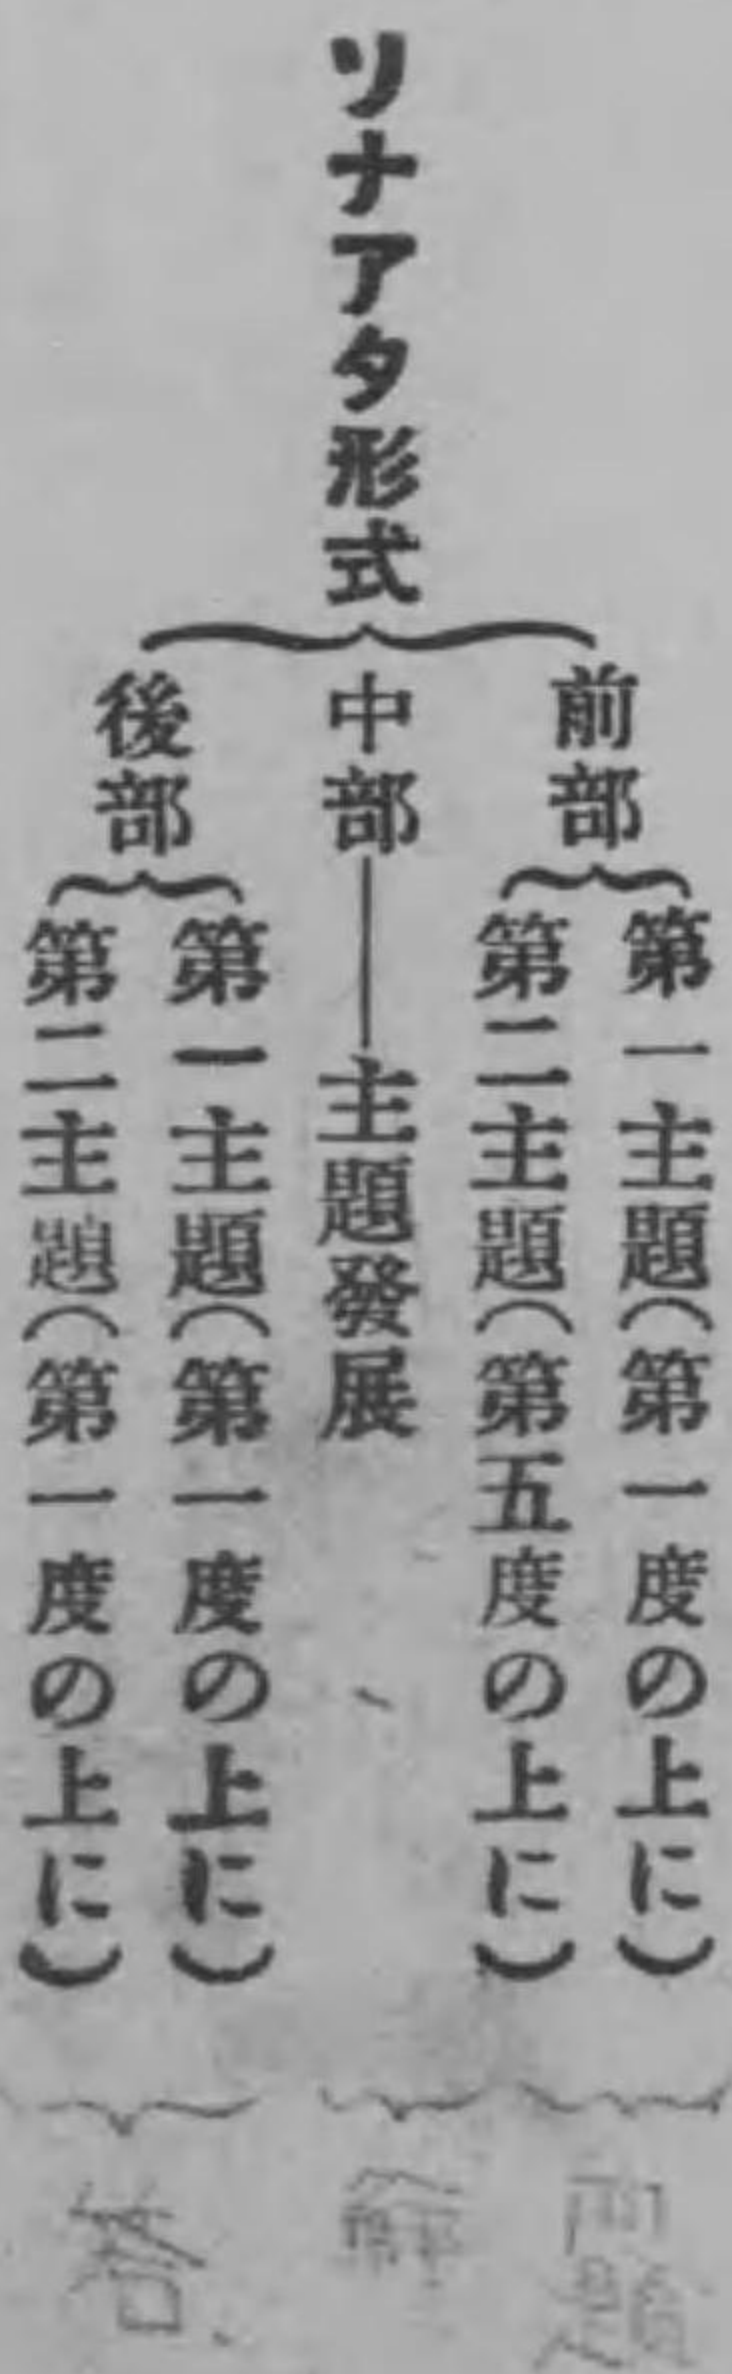 ソナアタ形式
前部
第一主題(第一度の上に)
第二主題(第五度の上に)
中部
主題發展
後部
第一主題(第一度の上に)
第二主題(第一度の上に)
問題
解
答